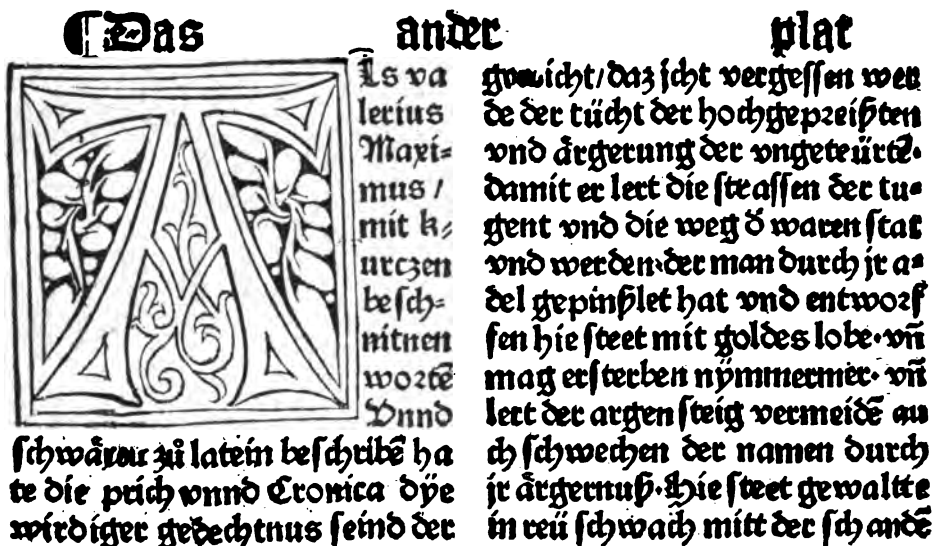 ¶ Das ander plat
Als va
lerius
Maxi⸗
mus /
mit k⸗
urczen
besch⸗
nitnen
wortē
Vnnd
schwåren zů latein beschribē ha
te die prich vnnd Cronica dÿe
wirdiger gedechtnus seind der
gwicht/daz jcht vergessen wer
de der tücht der hochgepreißten
vnd årgerung der vngeteürtē·
damit er lert die strassen der tu⸗
gent vnd die weg d̄ waren stat
vnd werden·der man durch jr a⸗
del gepinßlet hat vnd entworf
fen hie steet mit goldes lobe·vn̄
mag ersterben nÿmmermer· vn̄
lert der argen steig vermeidē au
ch schwechen der namen durch
jr årgernuß·Hie steet gewaltte
in reü schwach mitt der schandē